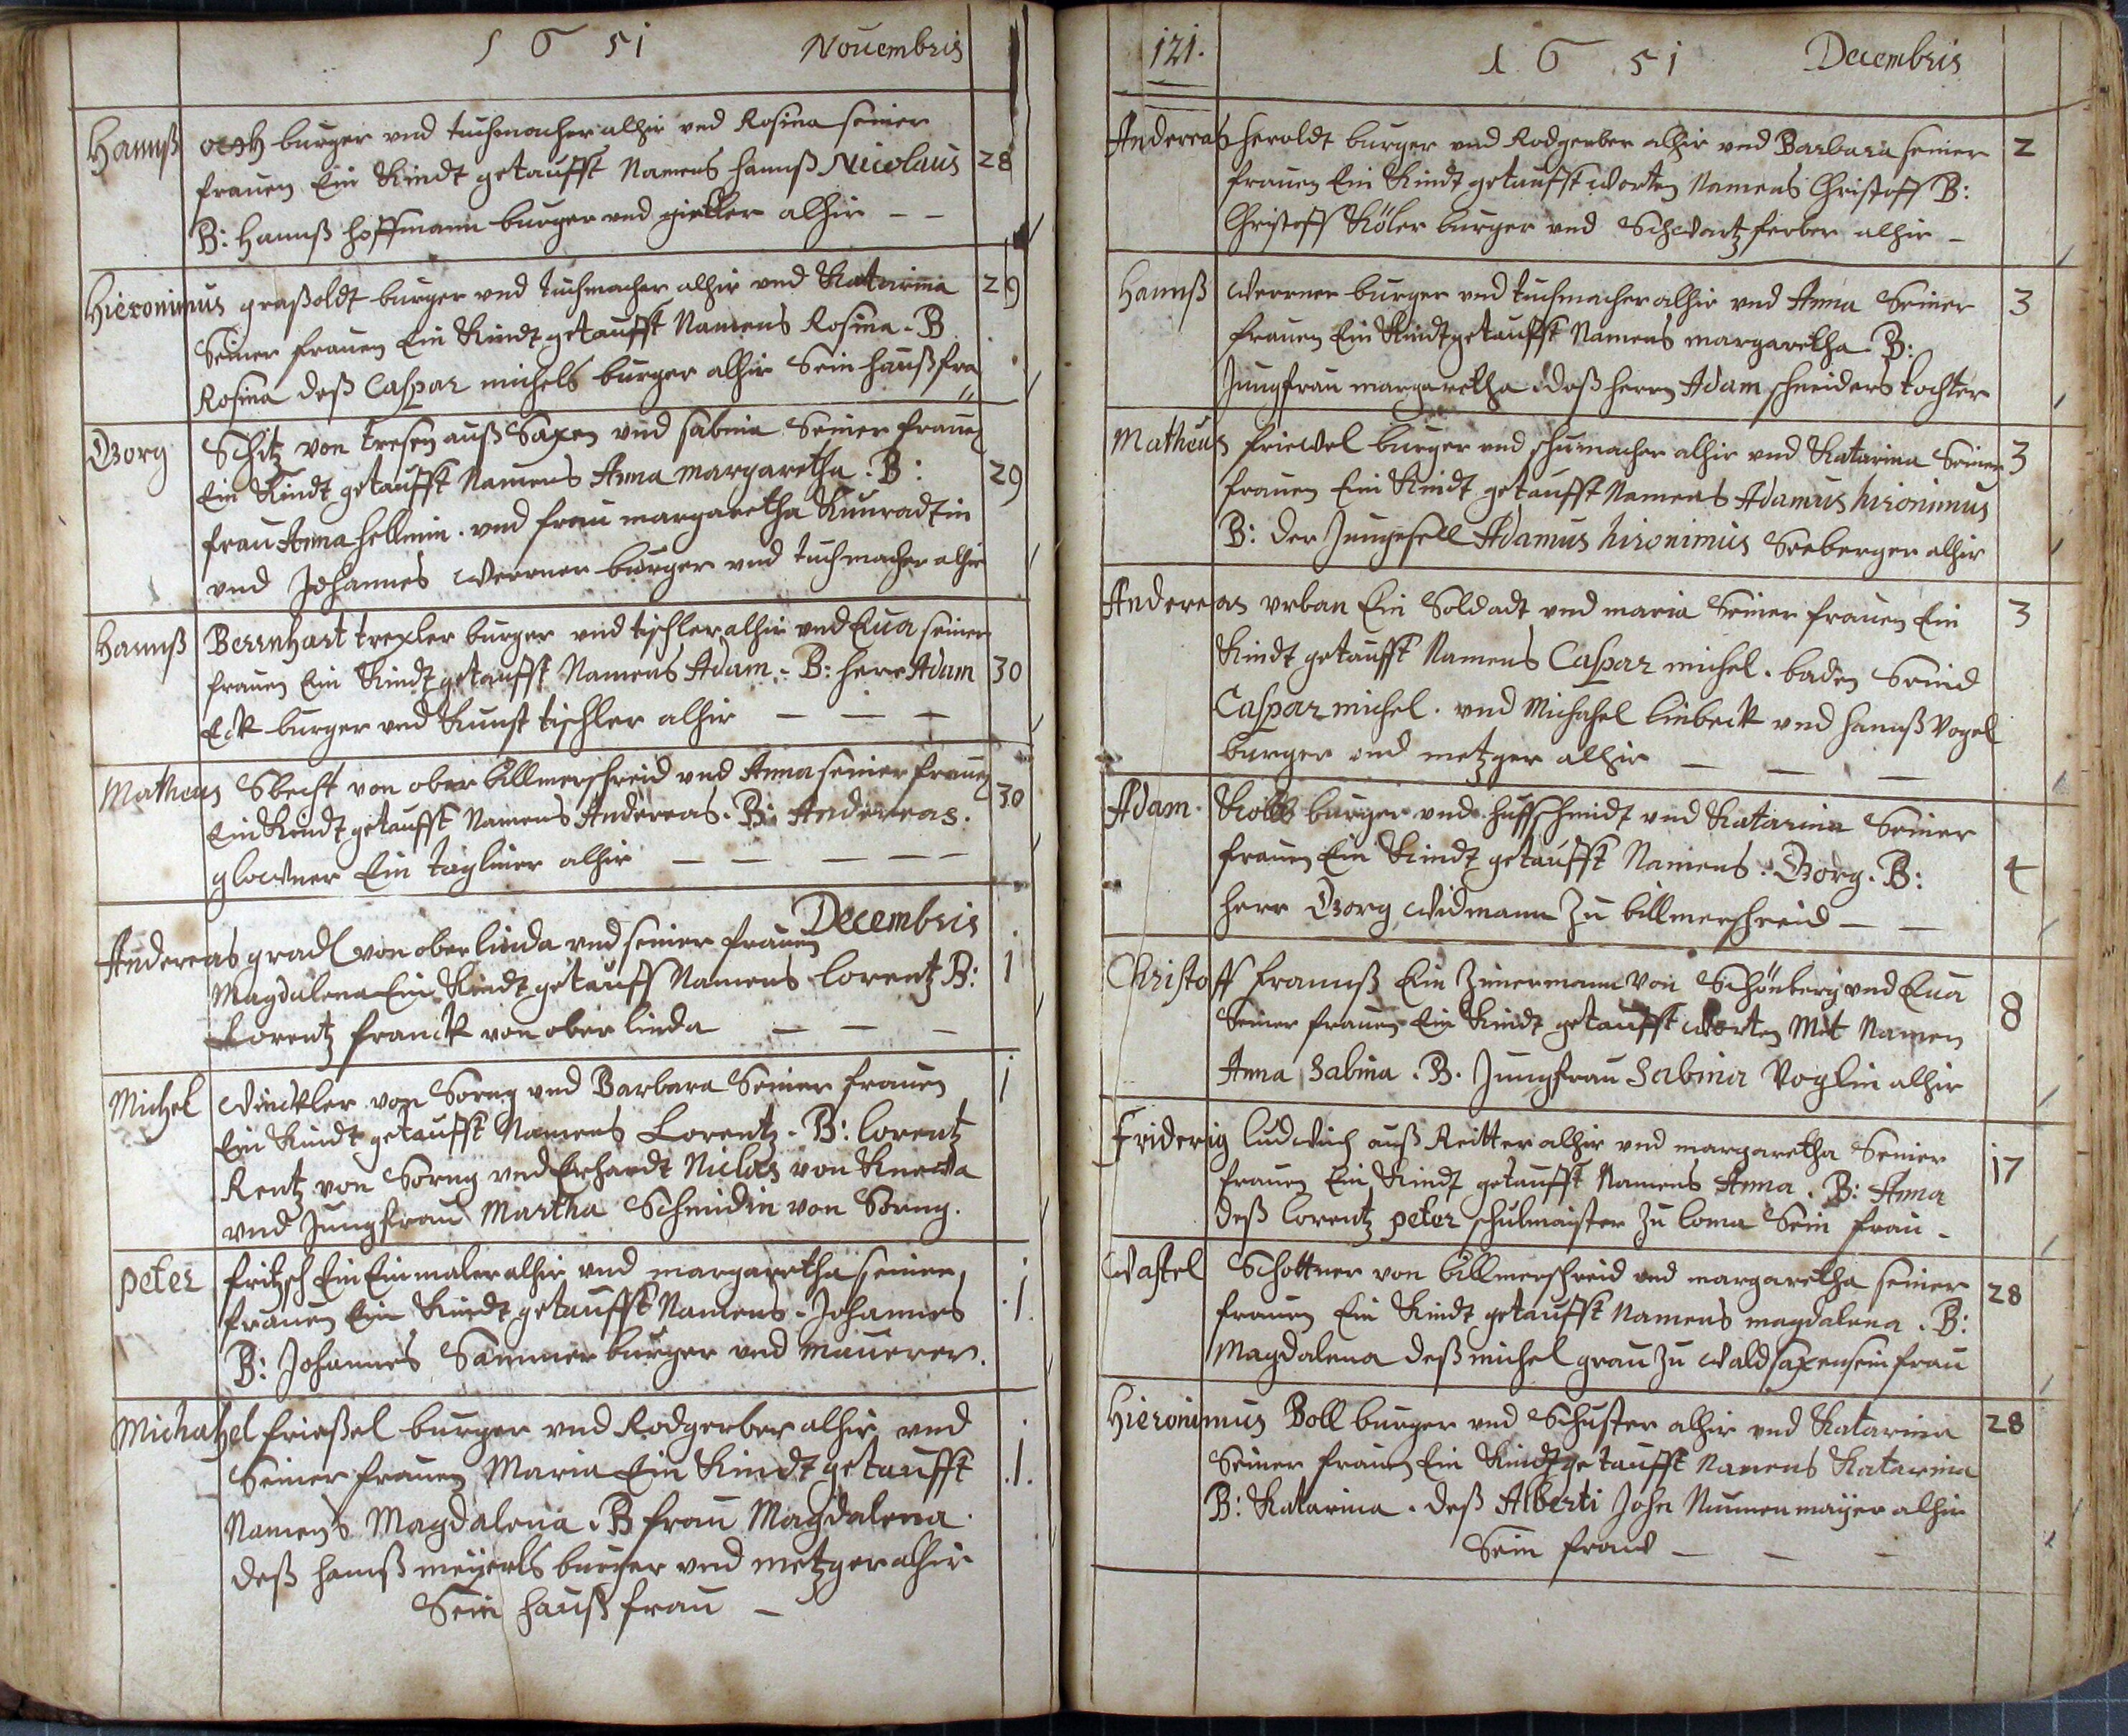 1651 Nouembris
Hannß burger vnd tuchmacher alhir vnd Rosina seiner
frauen Ein Kindt getaufft Namens hannß Nicolaus 28
B: Hannß hoffmann burger vnd alhir – –
Hieronimus graßoldt burger vnd tuchmacher alhir vnd Katarina 29
Seiner frauen Ein Kindt getaufft Namens Rosina. B
Rosina deß Caspar michels burger alhir Sein haußfra
Georg Schitz von tresen auß Saxen vnd sabina Seiner frauen
Ein Kindt getaufft Namens Anna margaretha. B: 29
frau Anna hellmin. vnd frau margaretha Kunradtin
vnd Johannes Werner burger vnd tuchmacher alhir
Hannß Bernhart trexler burger vnd tischler alhir vnd Eua seiner
frauen Ein Kindt getaufft Namens Adam. B: herr Adam 30
Eck burger vnd Kunst tischler alhir – – –
Matheus Sbecht von ober billmerschreid vnd Anna seiner frauen
Ein Kindt getaufft Namens Andereas. B: Andereas. 30
glowner Ein tagliner alhir – – – – –
Decembris
Andereas gradl von oberlinda vnd seiner frauen
Magdalena Ein Kindt getauff Namens lorentz B: 1
Lorentz franck von ober linda – – –
Michel Winckler von Sorng vnd Barbara Seiner frauen 1
Ein Kindt getaufft Namens Lorentz. B: lorentz
Rentz von Sorng vnd Erhardt Niclas von
vnd Jungfrau Martha Schmidin von Sorng.
peter fritzsch Ein Einmaler alhir vnd margaretha seiner
frauen Ein Kindt getaufft Namens. Johannes .1.
B: Johannes Sammer burger vnd maurer.
Michahel frießel burger vnd Rodgerber alhir vnd
Seiner frauen Maria Ein Kindt getaufft .1.
Namens Magdalena. B frau Magdalena
deß hannß meyerls burger vnd metzger alhir
Sein hauß frau –
121. 1651 Decembris
Andereas heroldt burger vnd Rodgerber alhir vnd Barbara seiner 2
frauen Ein Kindt getaufft worten Namens Christoff B:
Christoff Köler burger vnd Schwartz ferber alhir –
Hannß Werner burger vnd tuchmacher alhir vnd Anna Seiner 3
frauen Ein Kindt getaufft Namens margaretha B:
Jungfrau margaretha deß herrn Adam schneiders tochter
Matheus friewel burger vnd schumacher alhir vnd Katarina Seiner 3
frauen Ein Kindt getaufft Namens Adamus hironimus
B: der Jungesell Adamus hironimus Seeberger alhir
Andereas vrban Ein Soldadt vnd maria Seiner frauen Ein 3
Kindt getaufft Namens Caspar michel. baden Seind
Caspar michel. vnd Michahel linbeck vnd hannß Vogel
burger vnd metzger alhir – – –
Adam. Kolb burger vnd huffschmidt vnd Katarina Seiner
frauen Ein Kindt getaufft Namens. Georg. B: 4
herr Georg Widmann zu billmerschreid – –
Christoff frannß Ein Zimermann von Schönberg vnd Eua
Seiner frauen Ein Kindt getaufft worten Mit Namen 8
Anna Sabina. B. Jungfrau Sabina Voglin alhir
Friderig ludwich auß Reitter alhir vnd margaretha Seiner
frauen Ein Kindt getaufft Namens Anna. B: Anna 17
deß lorentz peter schulmaister zu loma Sein frau –
Wastel Schottner von billmerschreid vnd margaretha seiner 28
frauen Ein Kindt getaufft Namens magdalena. B:
Magdalena deß michel grau zu waldsaxen sein frau
Hieronimus Boll burger vnd Schuster alhir vnd Katarina 28
Seiner frauen Ein Kindt getaufft Namens Katarina
B: Katarina. deß Alberti Johe Nunenmaÿer alhir
Sein frau – – –